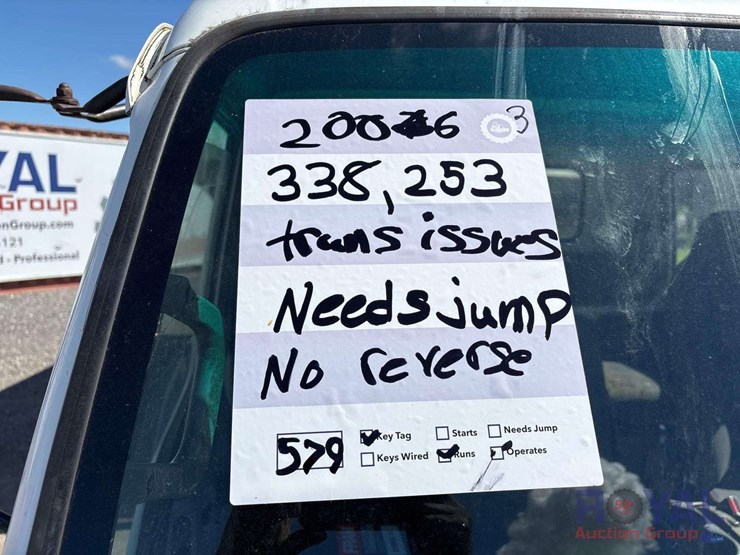 2006
3
338,253
trans issues
Needs jump
No reverse
579
Key Tag
Starts
Needs Jump
Keys Wired
Runs
Operates
YAL
Group
onGroup.com
121
d - Professional
ROYAL
Auction Group